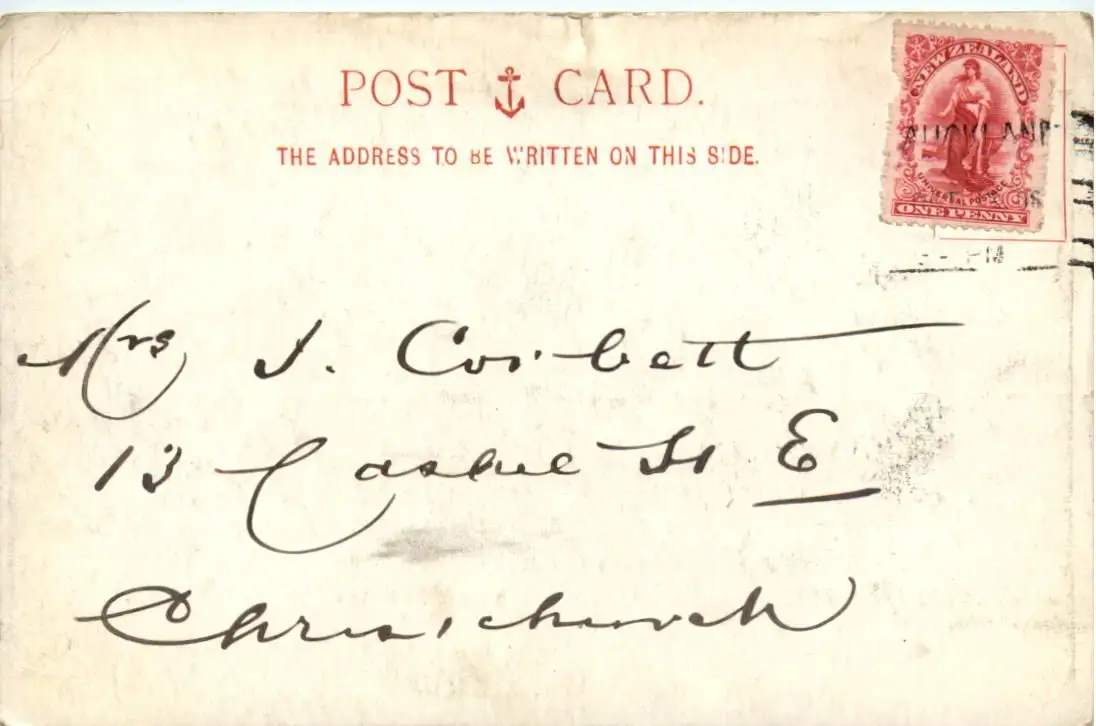 POST CARD.
THE ADDRESS TO BE WRITTEN ON THIS SIDE.
NEW ZEALAND
AUCKLAND
UNIVERSAL POSTAGE
ONE PENNY
PM
Mrs J. Corbett
13 Cashel St E
Christchurch